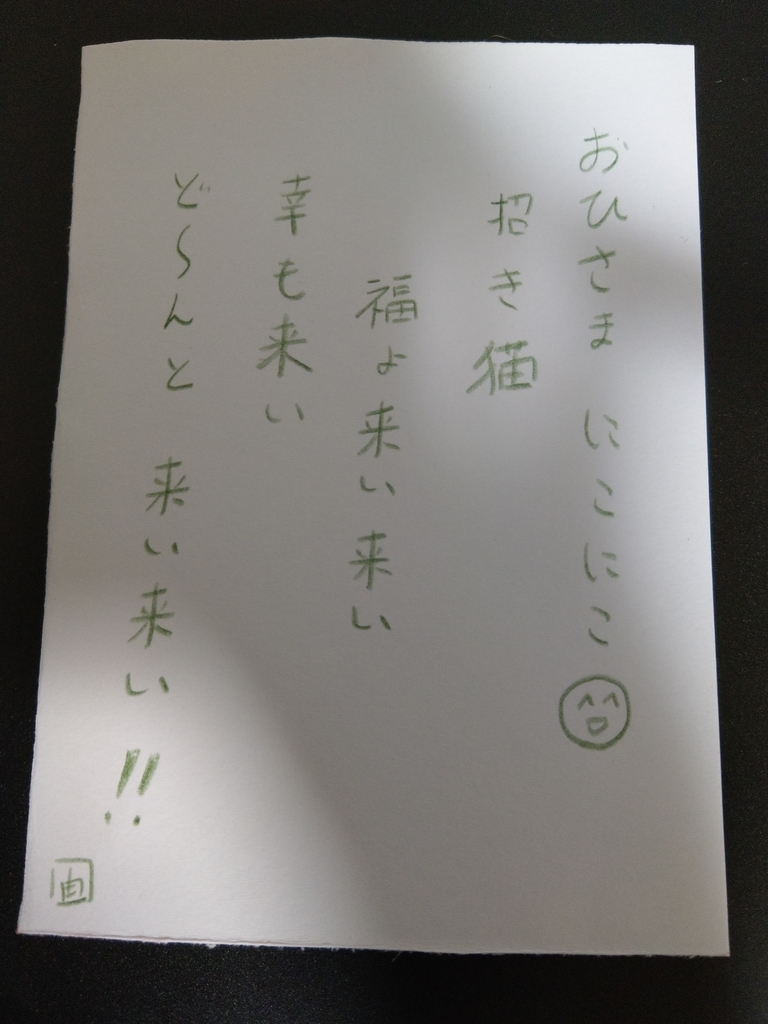 おひさま にこにこ
招き猫
福よ来い来い
幸も来い
ど〜んと 来い来い!!